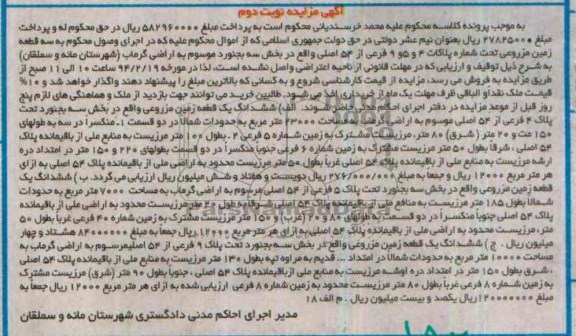 آگهی مزایده نوبت دوم
به موجب پرونده کلاسه محکوم علیه محمد خرسندیانی محکوم است به پرداخت مبلغ ۵۸۲۹۶۰۰۰۰ ریال در حق محکوم له و پرداخت
مبلغ ۲۷۸۲۵۰۰۰ ریال بعنوان نیم عشر دولتی در حق دولت جمهوری اسلامی که از اموال محکوم علیه که در اجرای وصول محکوم به سه قطعه
زمین مزروعی تحت شماره پلاکات ۴ و ۵ و ۹ فرعی از ۵۴ اصلی واقع در بخش سه بجنورد موسوم به اراضی گرماب (شهرستان مانه و سملقان)
به شرح ذیل توقیف و ارزیابی که در مهلت قانونی از ناحیه اعتراضی واصل نشده است، لذا در مورخه ۹۴/۲/۱۹ ساعت ۱۰ الی ۱۱ صبح از
طریق مزایده به فروش می رسد، مزایده از قیمت کارشناسی شروع و به کسانی که بالاترین مبلغ را پیشنهاد دهند واگذار خواهد شد. ۱۰٪
قیمت ملک نقد او الباقی ظرف مهلت یک ماه از خریدار اخذ می شود. طالبین خرید می توانند جهت بازدید از ملک و هماهنگی های لازم پنج
روز قبل از موعد مزایده در دفتر اجرای احکام مدنی حاضر شوند. الف) ششدانگ یک قطعه زمین مزروعی واقع در بخش سه بجنورد تحت
پلاک ۴ فرعی از ۵۴ اصلی موسوم به اراضی گرماب به مساحت ۲۳۰۰۰ متر مربع به حدودات شمالا در دو قسمت ۱ـ منکسرا در سه به طولهای
۱۵۰ مت و ۲۰ متر (شرق) ۸۰ متر، مرزیست مشترک به زمین شماره ۵ فرعی ۲ـ بطول ۱۰۰ متر مرزیست به منابع ملی از باقیمانده پلاک
۵۴ اصلی، شرقا بطول ۵۰ متر مرزیست مشترک به زمین شماره ۶ فرعی جنوبا منکسرا در دو قسمت بطولهای ۲۲۰ و ۱۵۰ متر در امتداد دره
ارشه مرزیست به منابع ملی از باقیمانده پلاک ۵۴ اصلی غربا بطول ۵۰ متر مرزیست محدود به اراضی ملی از باقیمانده پلاک ۵۴ اصلی به ازای
هر متر مربع ۱۲۰۰۰ ریال و جمعا به مبلغ ۲۷۶/۰۰۰/۰۰۰ ریال دویست و هفتاد و شش میلیون ریال ارزیابی می گردد. ب) ششدانگ یک
قطعه زمین مزروعی واقع در بخش سه بجنورد تحت پلاک ۵ فرعی از ۵۴ اصلی مرسوم به اراضی گرماب به مساحت ۷۰۰۰ متر مربع به حدودات
شمالا بطول ۱۸۵ متر مرزیست به منافع ملی از باقیمانده پلاک ۵۴ اصلی شرقا به طول ۲۰ متر مرزیست محدود به اراضی ملی از باقیمانده
پلاک ۵۴ اصلی جنوبا منکسرا در دو قسمت به طولهای ۸۰ و ۲۰ (غرب) ۱۵۰ متر مرزیست مشترک به زمین شماره ۴۰ فرعی غربا بطول ۵۰
متر، مرزیست محدود به اراضی ملی از باقیمانده پلاک ۵۴ اصلی به ازای هر متر مربع ۱۲۰۰۰ ریال جمعا به مبلغ ۸۴۰۰۰۰۰۰ هشتاد و چهار
میلیون ریال. ج) ششدانگ یک قطعه زمین مزروعی واقع در بخش سه بجنورد تحت پلاک ۹ فرعی از ۵۴ اصلی مرسوم به اراضی گرماب به
مساحت ۱۰۰۰۰ متر مربع به حدودات شمالا در امتداد ... قدیم به مراوه تپه بطول ۱۳۰ متر مرزیست به منابع ملی از باقیمانده پلاک ۵۴ اصلی
، شرق بطول ۱۵۰ متر در امتداد دره اوشه مرزیست به منابع ملی از باقیمانده پلاک ۵۴ اصلی، جنوبا بطول ۹۰ متر (شرق) مرزیست مشترک
به زمین شماره ۸ فرعی غربا بطول ۸۰ متر مرزیست محدود به زمین شماره ۸ فرعی ارزیابی شده به ازای هر متر مربع ۱۲۰۰۰ ریال جمعا به
مبلغ ۱۲۰۰۰۰۰۰۰ ریال یکصد و بیست میلیون ریال. م الف ۱۸
مدیر اجرای احکام مدنی دادگستری شهرستان مانه و سملقان